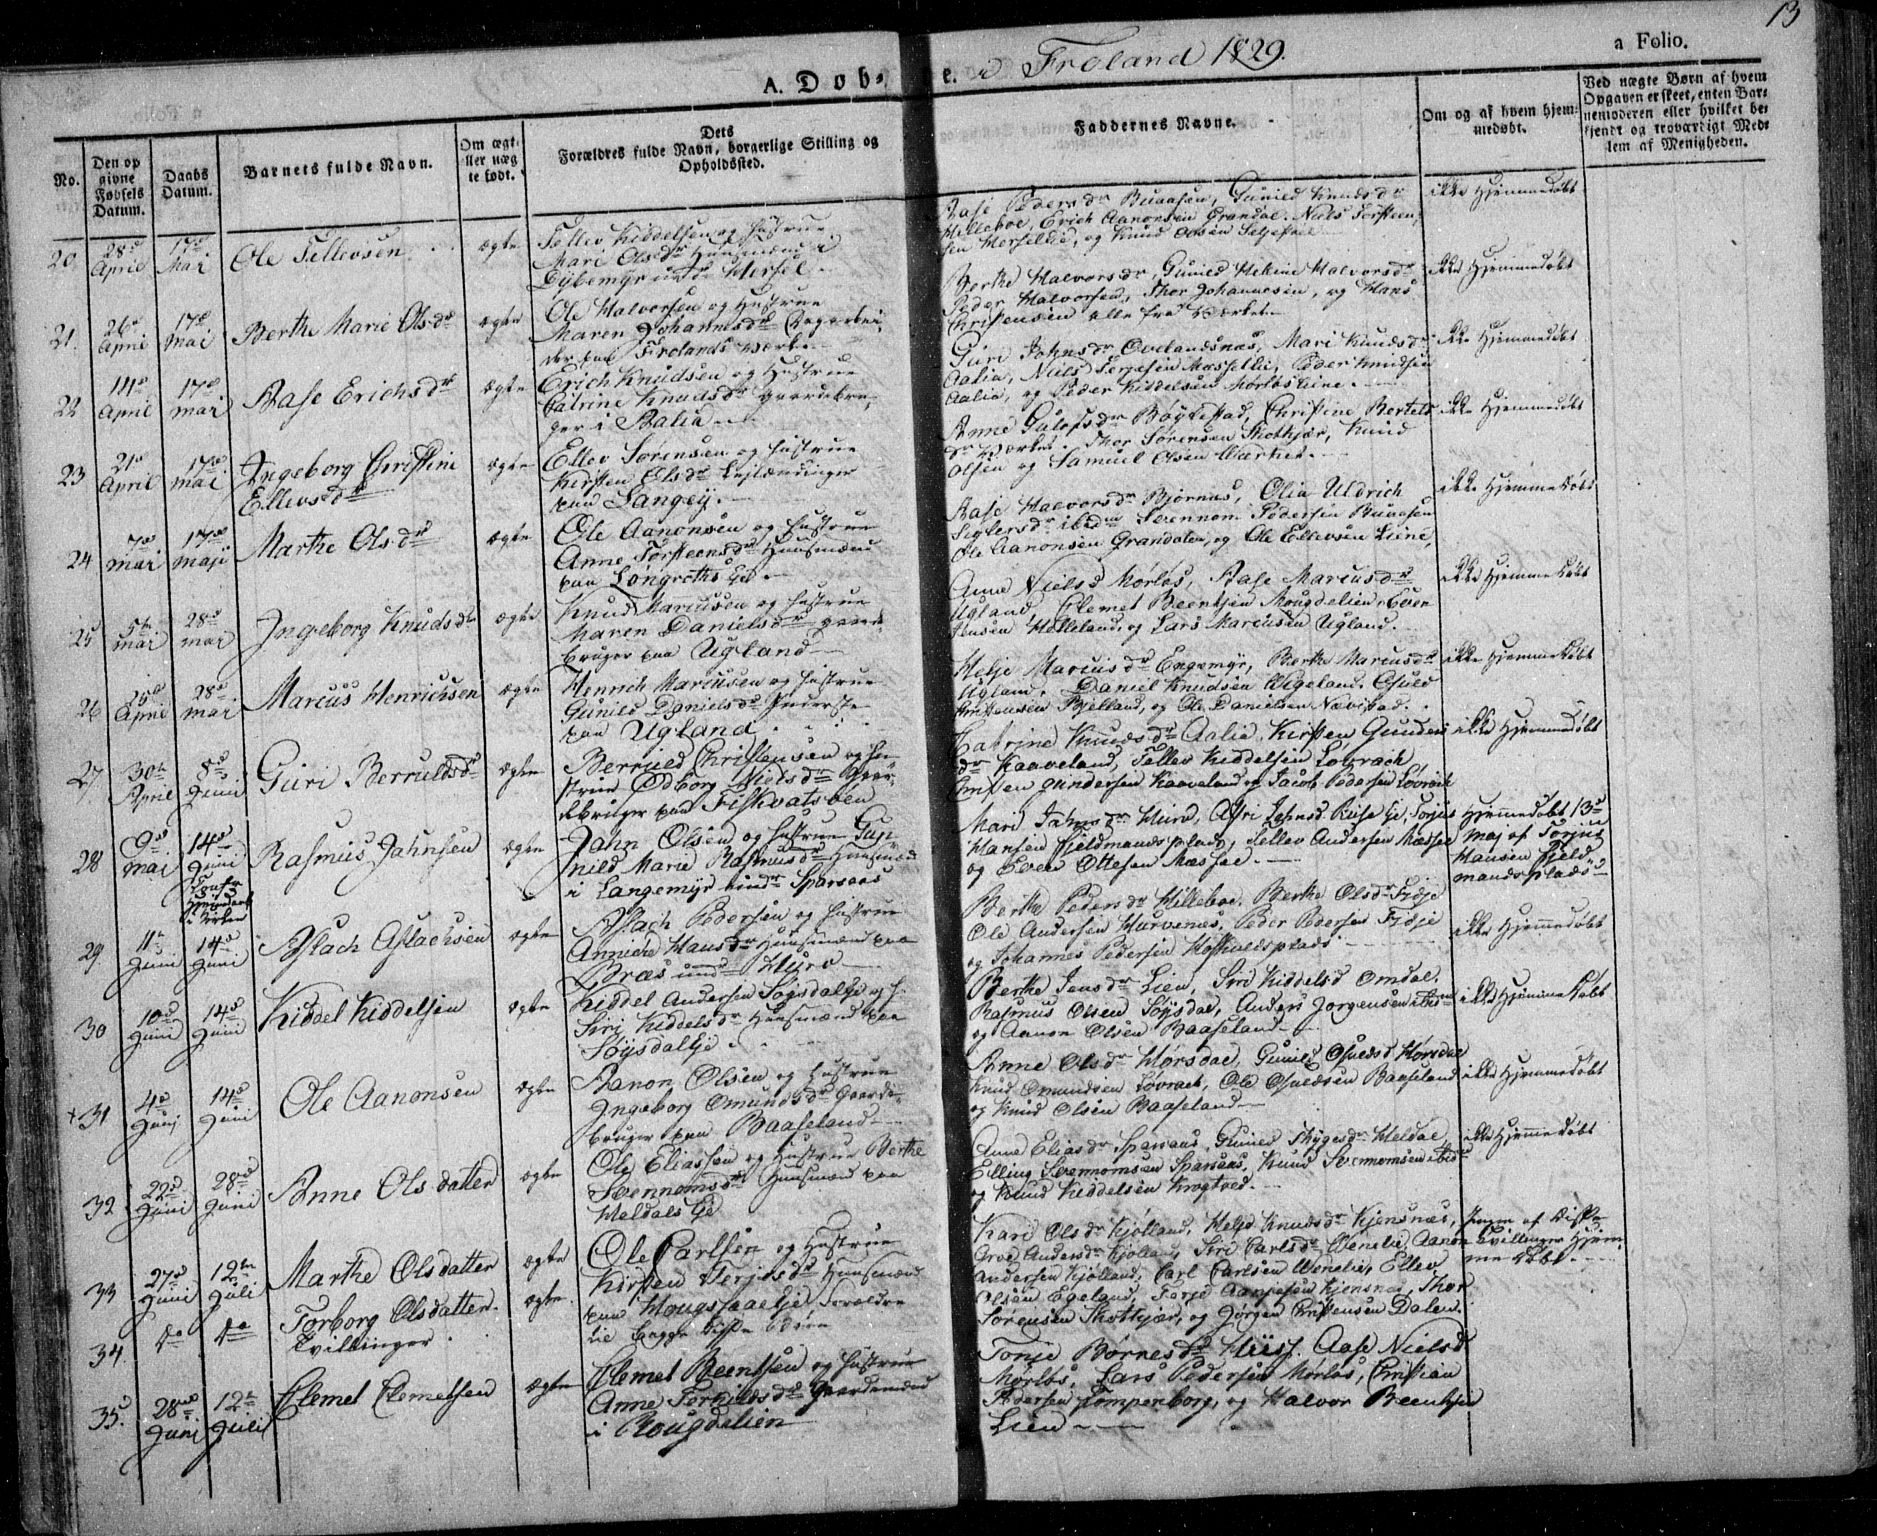 13
A. Døb- e. i Froland 1829.
a Folio.
No.
Den op
givne
Fødsels
Datum.
Daabs
Datum.
Barnets fulde Navn.
Om ægt-
eller næg
te født.
Dets
Forældres fulde Navn, borgerlige Stilling og
Opholdssted.
Faddernes Navne.
Om og af hvem hjem-
medøbt.
Ved nægte Børn af hvem
Opgaven er skeet, enten Bar-
nemoderen eller hvilket be-
kjendt og troværdigt Med-
lem af Menigheden.
20
28d April
17d Mai
Ole Tellevsen
ægte
Tellev Kiddelsen og Hustrue
Mari Olsdr Huusmænd i
Dybemyr under Herfel
Aase Pedersdr Buaasen, Gunild Knudsdr
Hilleboe, Erich Aanonsen Grandal. Niels Torsteen
sen Herfeldie, og Knud
ikke Hjemmedøbt
21.
26d April
17d Mai
Berthe Marie Olsdr
ægte
Ole Halvorsen og Hustrue
Maren Johannesdr
der paa Frolands værk
Berthe Halvorsdr, Gunild Halvorsdr
Peder Halvorsen, Thor Johannesen, og Hans
Christensen alle fra Værket
ikke Hjemmedøbt
22
14d April
17d mai
Aase Erichsdr
ægte
Erich Knudsen og Hustrue
Catrine Knudsdr Gaardebru-
ger i Aalia
Guri Johnsdr Ovelandsnæs, Mari Knudsdr
Aalia, Niels Terjesen Mæsselie, Peder Knudsen
Aalia, og Peder Kiddelsen Mørløsheine.
ikke Hjemmedøbt
23
21d April
17d mai
Ingeborg Christine
Ellevsdr
ægte
Ellev Sørensen og Hustrue
Kirsten Olsdr Leilændinger
paa Langeij.
Anne Bøylestad, Christine Bertels
dr Værket. Thor Sørensen Skotkjær, Knud
Olsen og Samuel Olsen Værket.
ikke Hjemmedøbt
24
7d mai
17d maji
Marthe Olsdr
ægte
Ole Aanonsen og Hustrue
Anne Torsteensdr Huusmænd
paa
Aase Halvorsdr Bjørnas, Olia Uldrich
ibidm Svennom Pedersen Buaasen
Ole Aanonsen Grandalen, og Ole Ellevsen Liene,
ikke Hjemmedøbt
25
5te mai
28d mai
Ingeborg Knudsdr
ægte
Knud Marcusen og Hustrue
Maren Danielsdr Gaarde-
bruger paa Ugland
Anne Nielsd Mørløs, Aase Marcusdr
Ugland, Clemet Beentsen Mougdelien, Even
Jensen Hølleland, og Lars Marcusen Ugland.
ikke Hjemmedøbt
26
25d April
28d mai
Marcus Henrichsen
ægte
Henrich Marcusen og Hustrue
Gunild Danielsdr Inderste
paa Ugland
Helje Marcusdr Engemyr, Berthe Marcusdr
Ugland. Daniel Knudsen Vigeland. Osuld
Cristensen Bjelland, og Ole Danielsen Nævistad.
ikke Hjemmedøbt
27
30te April
8d Juni
Guri Berruldsdr
ægte
Berruld Christensen og Hu-
strue Odborg Nielsdr Gaar-
debruger paa Fiskvatsøen
Catrine Knudsdr Aalie, Kirsten Gunders
dr Kaaveland, Tellev Kiddelsen Lovrach
Cristen Gundersen Kaaveland og Jacob Pedersen Lovrach
ikke Hjemmedøbt
28
9d mai
14d Juni
Rasmus Jahnsen
ægte
Jahn Olsen og Hustrue Gun
nild Marie Rasmusdr Huusmænd
i Langemyr undr Sparsaas
Mari Jahnsdr Hurv,
Hansen Fjeldmandsplads, Tellev Andersen Mæsel
og Even Ottesen Mæssel.
Hjemmedøbt 13d
Maj af Torjus
Hansen Fjeld
mandsplads
29
11te Juni
14d Juni
Aslach Aslachsen
ægte
Aslach Pedersen og Hustrue
Hansdr Huusmænd paa
Bræs undr Hurv
Berthe Pedersdr Hilleboe. Berthe Olsdr
Ole Andersen Hurvenæs, Peder Pedersen
og Johannes Pedersen
ikke Hjemmedøbt
30
10d Juni
14d Juni
Kiddel Kiddelsen
ægte
Kiddel Andersen
Siri Kiddelsdr Huusmænd paa
Berthe Jensdr Lien, Siri Kiddelsd Omdal.
Rasmus Olsen Søysdal, Anders Jørgensen ibidm
og Aanon Olsen Baaseland
ikke Hjemmedøbt
+31
4d Junj
14d Juni
Ole Aanonsen
ægte
Aanon Olsen og Hustrue
Ingeborg Omundsdr Gaarde-
bruger paa Baaseland
Anne Olsdr Hørsdal, Gunild Osuldsd Hørsdal
Knud Omundsen Lovrach, Ole Osuldsen Baaseland
og Knud Olsen Baaseland
ikke Hjemmedøbt
32
22d Juni
28d Juni
Anne Olsdatter
ægte
Ole Eliassen og Hustrue Berthe
Svennomsdr Huusmænd paa
Heldals
Anne Eliasdr Sparsaas, Gunild Thygesdr Heldal
Elling Svennomsen Sparsaas, Knud Svennomsen ibidm
og Knud Kiddelsen Krogtved.
ikke Hjemmedøbt
33
27d Juni
12te Juli
Marthe Olsdatter
ægte
34.
do
do
Torborg Olsdatter
Tvillinger
ægte
Ole Carlsen og Hustrue
Kirsten Terjesdr Huusmænd
paa Forældre
til begge disse
Kari Olsdr Kjølland, Helje Knudsdr Kjensnæs,
Andersdr Kjølland, Siri Carlsdr Wenelie, Aanon
Andersen Kjølland, Carl Carlsen Wenelie, Ellev
Olsen Egeland, Terje Kjensnæs, Thor
Sørensen Skotkjær, og Jørgen Cristensen Dalen.
Ingen af disse
Tvillinger Hjem-
me døbt.
35.
28d Junj
12te Juli
Clemet Clemetsen
ægte
Clemet Beentsen og Hustrue
Anne Terkildsdr Gaardemænd
i Mougdalien
Tonje Børnesdr Huss. Aase Nielsd
Mørløs, Lars Pedersen Mørløs, Cristian
Pedersen Tompenborg, og Halvor Beentsen
Lien